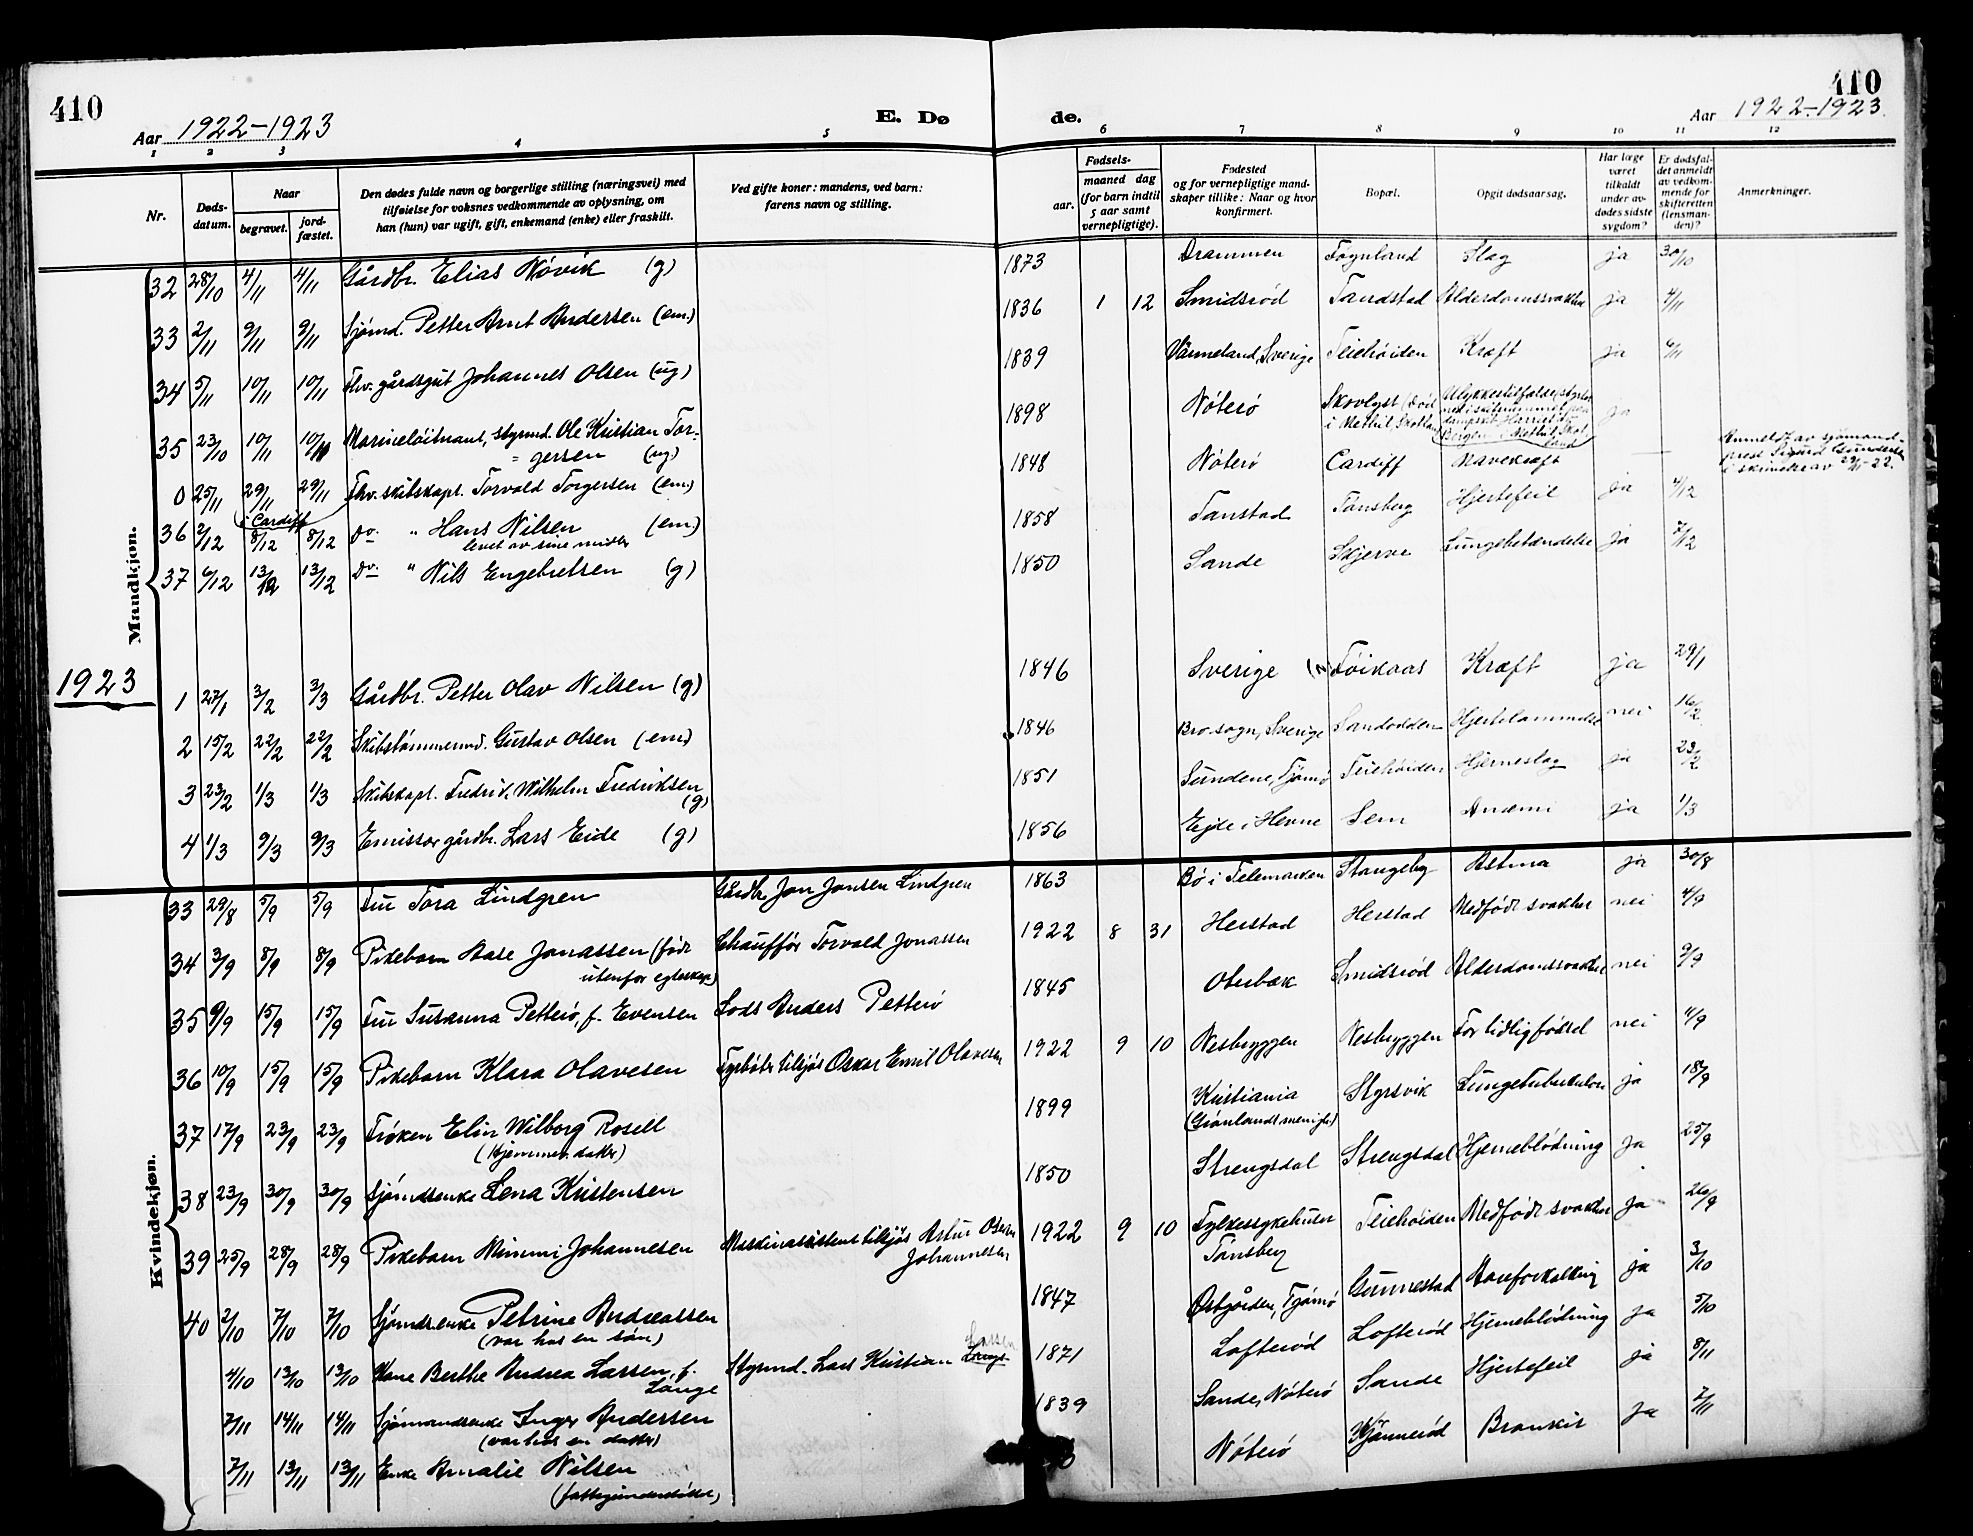 410
Aar 1922-1923
E. Dø
de.
410
Aar 1922-1923.
1 2 3 4 5 6 7 8 9 10 11 12
Nr.
Døds-
datum.
Naar
begravet.
jord-
fæstet.
Den dødes fulde navn og borgerlige stilling (næringsvei) med
tilføielse for voksnes vedkommende av oplysning, om
han (hun) var ugift, gift, enkemand (enke) eller fraskilt.
Ved gifte koner: mandens, ved barn:
farens navn og stilling.
Fødsels-
aar.
maaned dag
(for barn indtil
5 aar samt
vernepligtige).
Fødested
og for vernepligtige mand-
skaper tillike: Naar og hvor
konfirmert.
Bopæl.
Opgit dødsaarsag.
Har læge
været
tilkaldt
under av-
dødes sidste
sygdom?
Er dødsfal-
det anmeldt
av vedkom-
mende for
skifteretten
(lensman-
den)?
Anmerkninger.
Mandkjøn.
32 28/10 4/11 4/11 Gårdbr. Elias Növik (g) 1873 Drammen Fognland Slag ja 30/10
33 2/11 9/11 9/11 Sjömd. Petter Arnt Andersen (em.) 1836 1 12 Smidsröd Tandstad Alderdomssvakhet ja 4/11
34 5/11 10/11 10/11 Fhv. gårdsgut Johannes Olsen (ug) 1839 Värmeland, Sverige Teiehöiden Kræft ja 6/11
35 23/10 10/11 10/11 Marinelöitnant, styrmd. Ole Kristian Tor-
gersen (ug) 1898 Nöterö Skovlyst (död
i Methil, Skotland) Ulykkestilfælde, styrtet
ned i
dampsk. Harriet
Bergen i Methil, Skot-
land ja
0 25/11 29/11 29/11 Fhv. skibskapt. Torvald Torgersen (em.) 1848 Nöterö Cardiff Mavekræft — Anmeldt av sjömand-
prest Sigurd Gundersen
i skrivelse av 29/11-22.
i Cardiff
36 2/12 8/12 8/12 do. " Hans Nilsen (em.) 1858 Tanstad Tönsberg Hjertefeil ja 4/12
levet av sine midler
37 6/12 13/12 13/12 do. " Nils Engebretsen (g) 1850 Sande Skjerve Lungebetændelse ja 7/12
1923
1 27/1 3/2 3/3 Gårdbr. Petter Olav Nilsen (g) 1846 Sverige Föikaas Kræft ja 29/1
2 15/2 22/2 22/2 Skibstömmermd. Gustav Olsen (em.) 1846 Bro sogn, Sverige Sandodden Hjertelammelse nei 16/2
3 23/2 1/3 1/3 Skibskapt. Fredrik Wilhelm Fredriksen
(g) 1851 Sundene, Tjömö Teiehöiden Hjerneslag ja 23/2
4 1/3 9/3 9/3 Emissær gårdbr. Lars Eide (g) 1856 Ejde i Hevne Sem Anæmi ja 1/3
Kvindekjøn.
33 29/8 5/9 5/9 Fru Tora Lindgren Gårdbr. Jon Jonsen Lindgren 1863 Bö i Telemarken Stangeby Astma ja 30/8
34 3/9 8/9 8/9 Pikebarn Aase Jonassen (född
utenfor egteskap) Chauffør Torvald Jonassen 1922 8 31 Herstad Herstad Medfödt svakhet nei 4/9
35 9/9 15/9 15/9 Fru Susanna Petterö, f. Evensen Lods Anders Petterö 1845 Oterbæk Smidsröd Alderdomssvakhet nei 9/9
36 10/9 15/9 15/9 Pikebarn Klara Olavesen Fyrböter tilsjøs Oskar Emil Olavesen 1922 9 10 Nesbryggen Nesbryggen For tidlig födsel nei 11/9
37 17/9 23/9 23/9 Fröken Elin Wilborg Rosell
(hjemmev. datter) 1899 Kristiania
(Grönlands menighet) Styrsvik Lungetuberkulose ja 18/9
38 23/9 30/9 30/9 Sjömdsenke Lena Kristensen 1850 Strengsdal Strengsdal Hjerneblödning ja 25/9
39 25/9 28/9 28/9 Pikebarn Mimmi Johannesen Maskinassistent tilsjøs Artur Oskar
Johannesen 1922 9 10 Fylkessykehuset
Tönsberg Teiehöiden Medfödt svakhet ja 26/9
40 2/10 7/10 7/10 Sjömdsenke Petrine Andreassen
(var hos en sön) 1847 Östgården, Tjömö Gunnestad Aareforkalkning ja 3/10
4/10 13/10 13/10 Kone Berthe Andrea Larsen, f.
Lange Styrmd. Lars Kristian Larsen 1871 Lofteröd Lofteröd Hjerneblödning ja 5/10
7/11 14/11 14/11 Sjömandsenke Inger Andersen
(var hos en datter) 1839 Sande, Nöterö Sande Hjertefeil ja 8/11
7/11 13/11 13/11 Enke Amalie Nilsen
(fattigunderstöttet) Nöterö Kjönneröd Bronkit ja 7/11